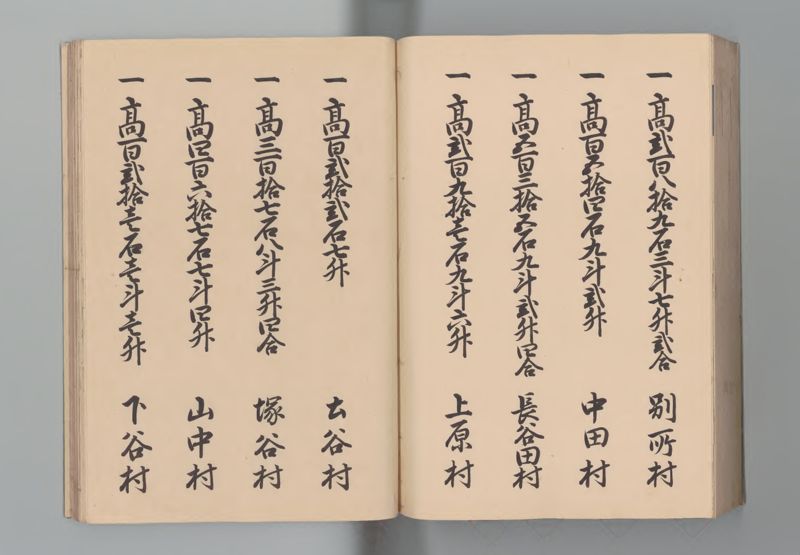 一 高弐百八拾九石三斗七升弐合 別所村
一 高百五拾四石九斗弐升 中田村
一 高五百三拾五石九斗弐升四合 長谷田村
一 高弐百九拾壱石九斗六升 上原村
一 高百弐拾弐石七升 古谷村
一 高三百拾七石八斗三升四合 塚谷村
一 高四百六拾七石七斗四升 山中村
一 高百弐拾壱石壱斗壱升 下谷村